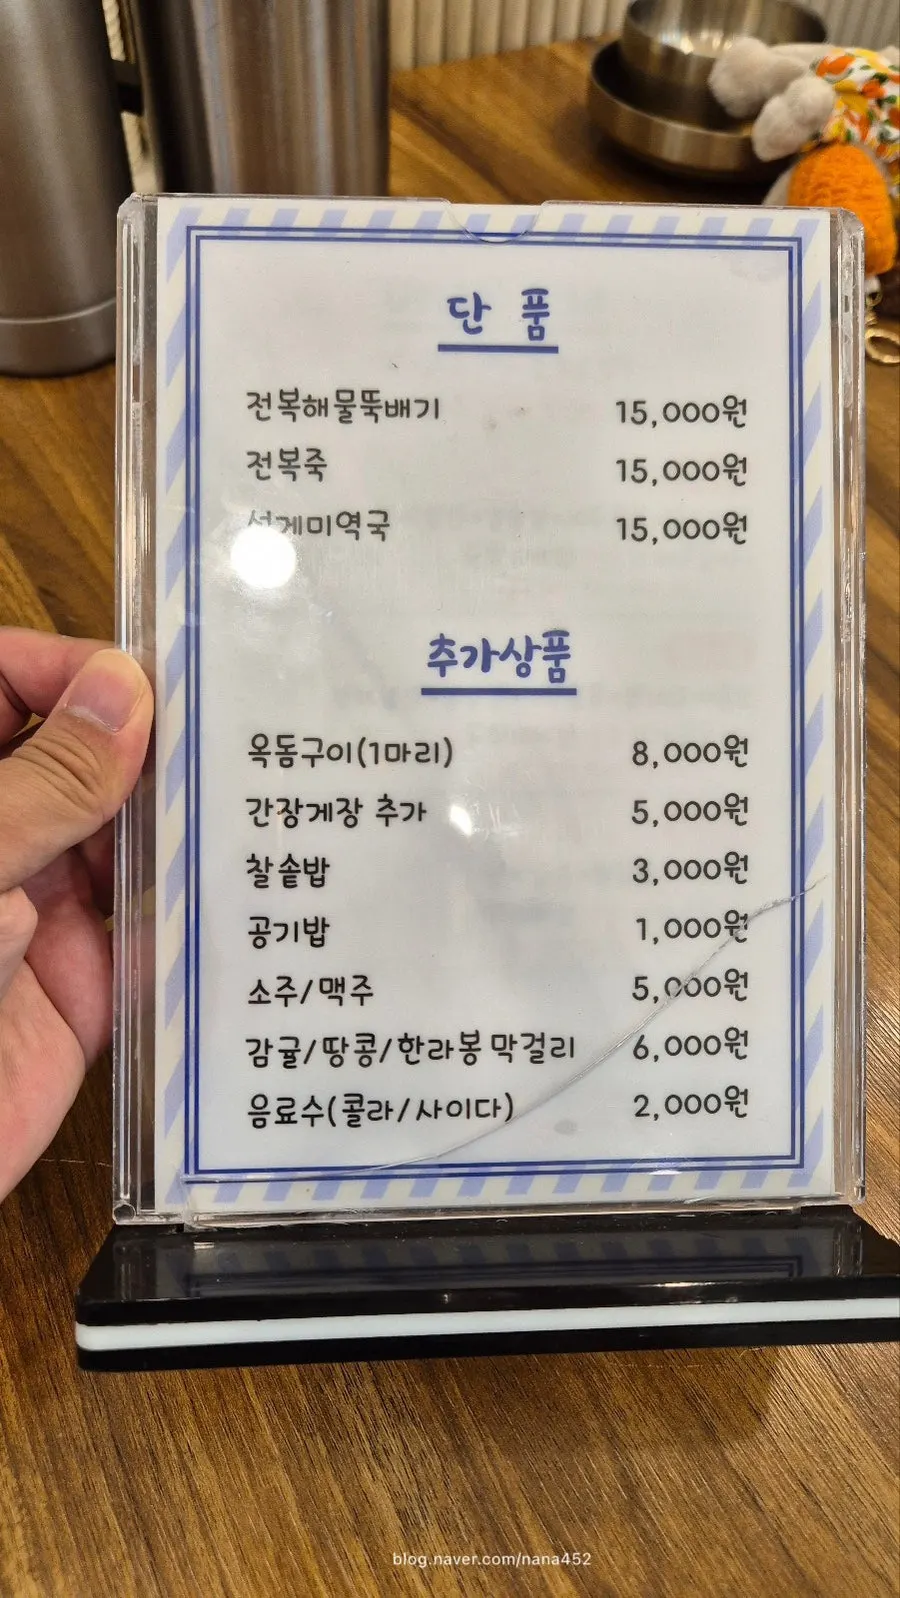 단 품
전복해물뚝배기 15,000원
전복죽 15,000원
성게미역국 15,000원
추가상품
옥돔구이(1마리) 8,000원
간장게장 추가 5,000원
찰솥밥 3,000원
공기밥 1,000원
소주/맥주 5,000원
감귤/땅콩/한라봉 막걸리 6,000원
음료수(콜라/사이다) 2,000원
blog.naver.com/nana452